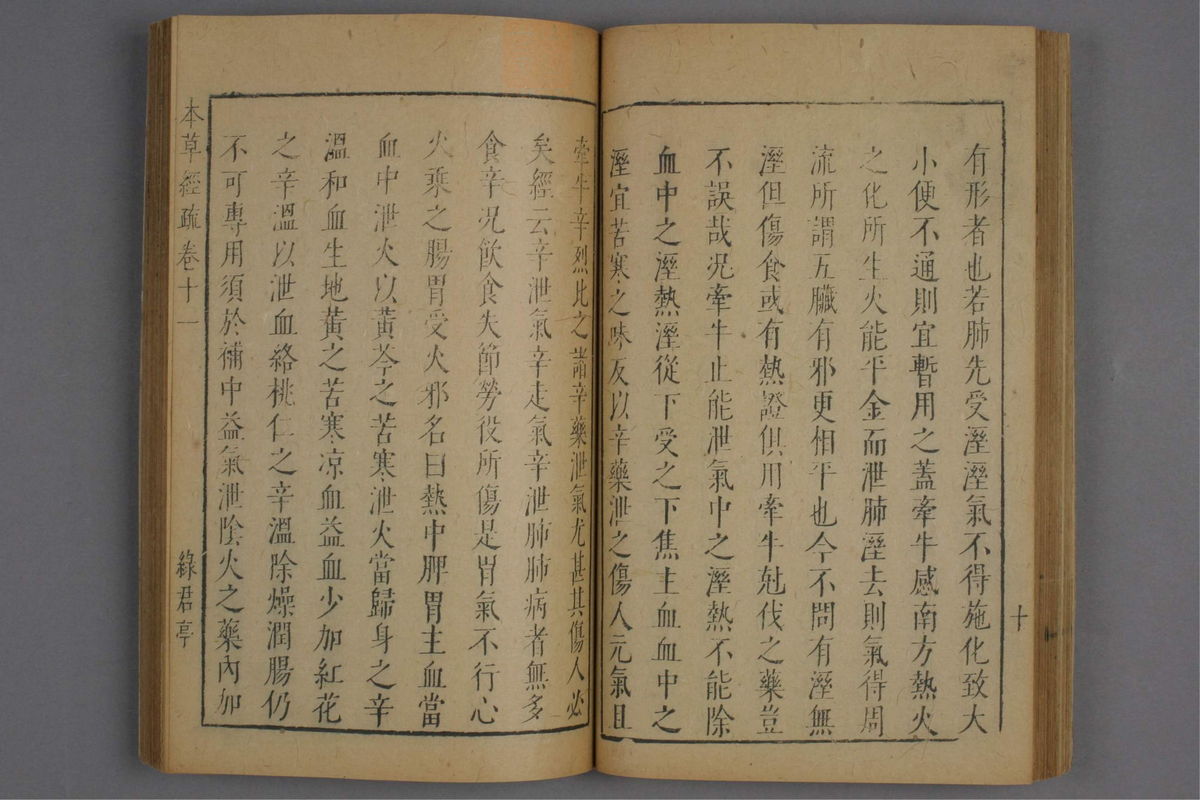 十
有形者也若肺先受溼溼氣不得施化致大
小便不通則宜暫用之葢牽牛感南方熱火
之化所生火能平金而泄肺溼去則氣得周
流所謂五臟有邪更相平也今不問有溼無
溼但傷食或有熱證俱用牽牛尅伐之藥豈
不誤哉况牽牛止能泄氣中之溼熱不能除
血中之溼熱溼從下受之下焦主血血中之
溼宜苦寒之味反以辛藥泄之傷人元氣且
牽牛辛烈比之諸辛藥泄氣尤甚其傷人必
矣經云辛泄氣辛走氣辛泄肺肺病者無多
食辛况飲食失節勞役所傷是胃氣不行心
火乘之腸胃受火邪名曰熱中脾胃主血當
血中泄火以黃芩之苦寒泄火當歸身之辛
溫和血生地黃之苦寒凉血益血少加紅花
之辛溫以泄血絡桃仁之辛溫除燥潤腸仍
不可專用須於補中益氣泄陰火之藥內加
本草經疏卷十一
綠君亭